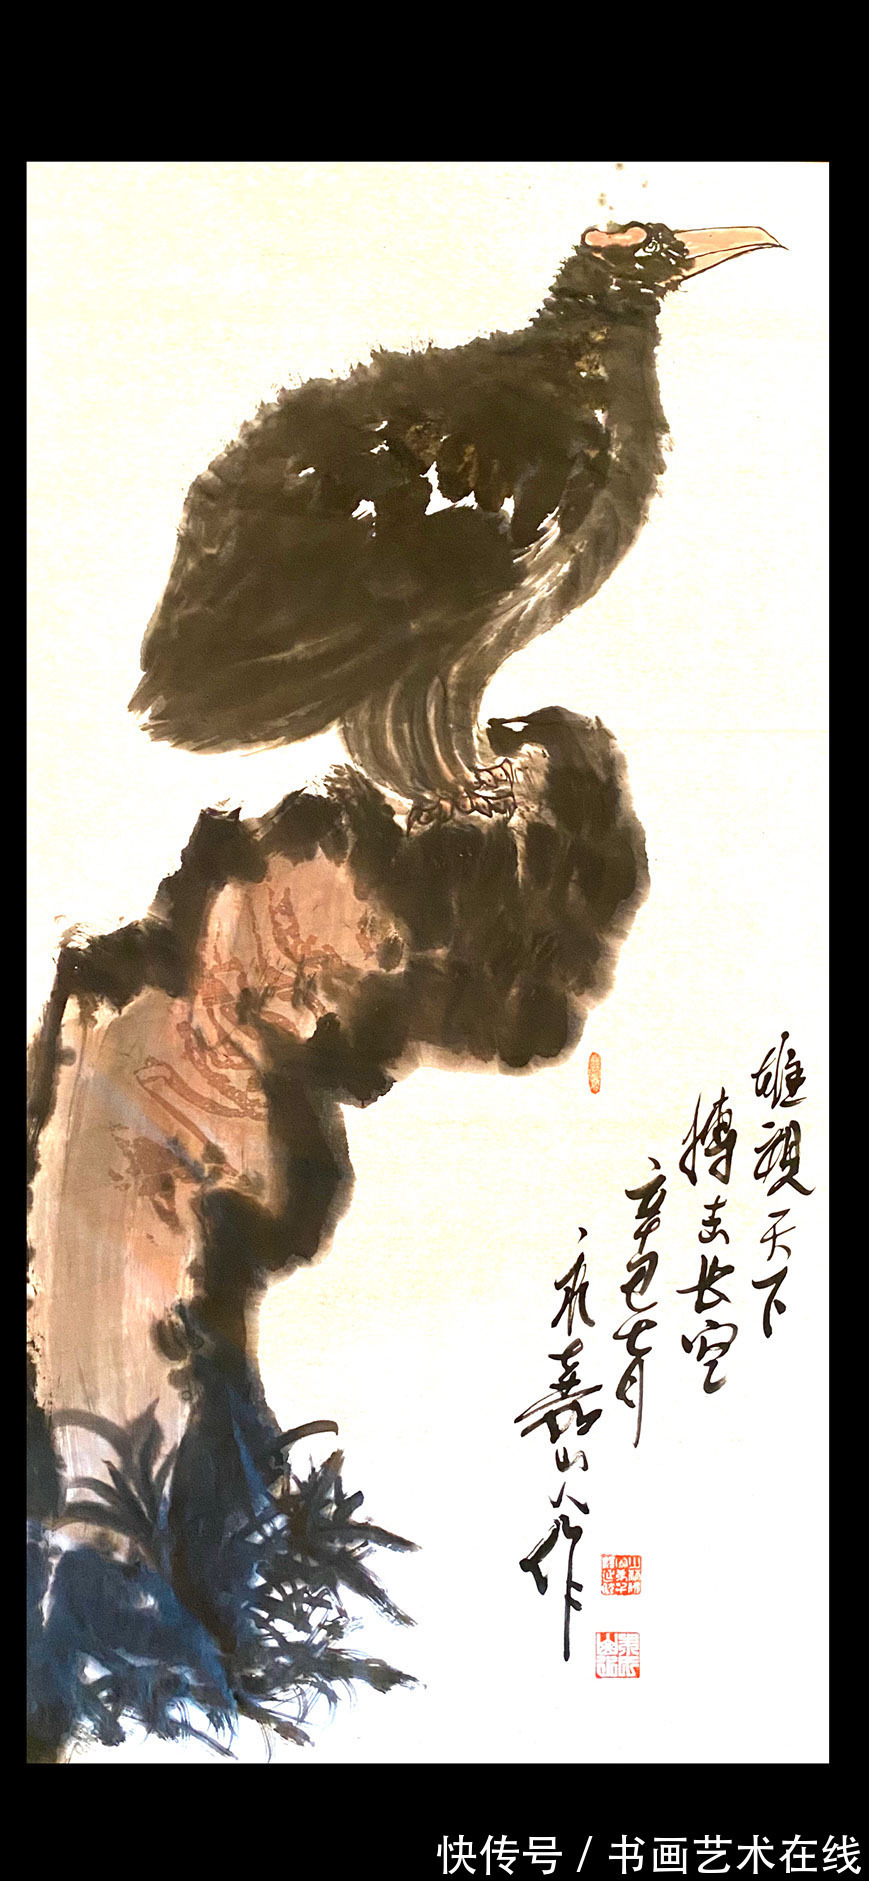 雄视天下
搏击长空
辛丑七月
嘉山人作
快传号 / 书画艺术在线